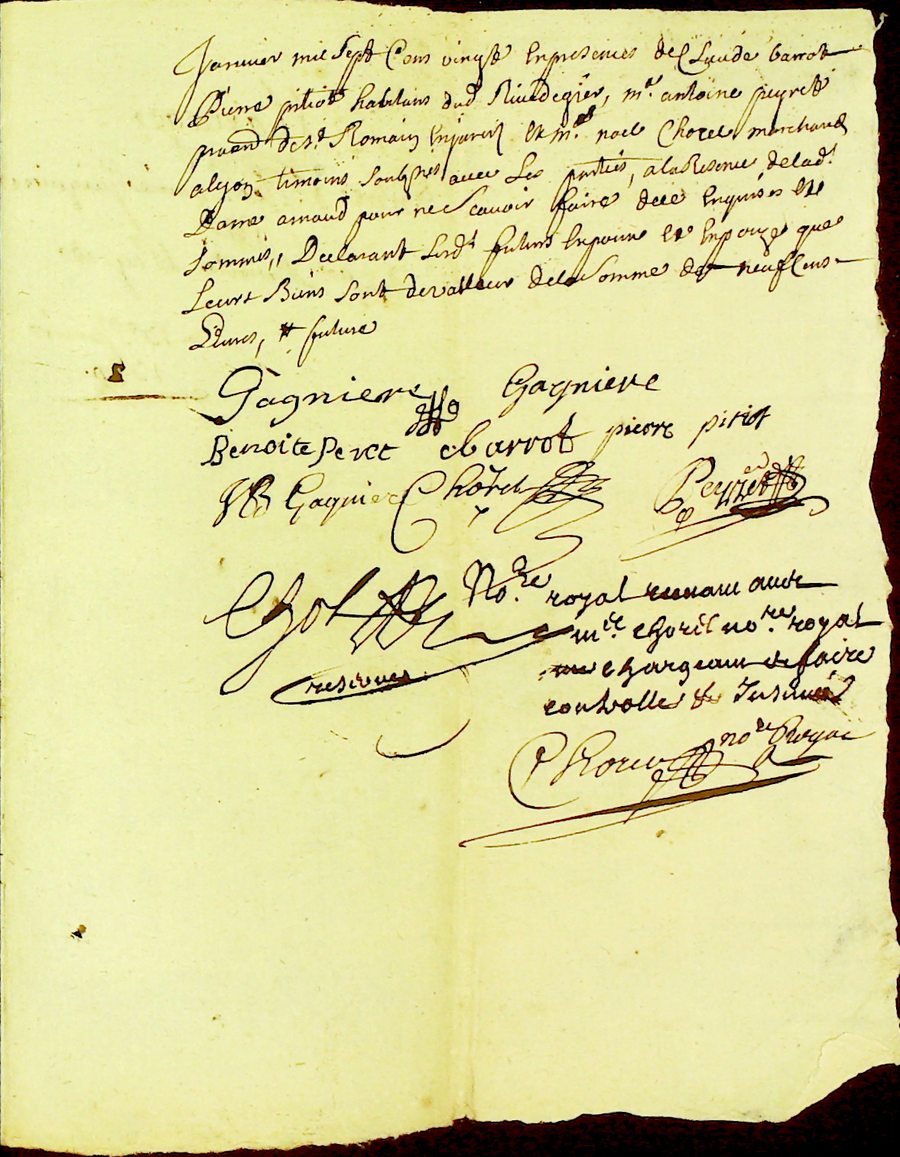 Janvier mil Sept Cens vingt En presences de Claude barrot
Pierre pitiot habitans dud Rivedegier, mr antoine peyret
praend de st Romain Enjarez Et mr noel Chorel marchand
a lyon timoins Soulsnes avec Les parties, a la Reserve de lad.
Dame arnaud pour ne Scavoir faire de ce Enquises Et
sommés, Declarant Lesdt futurs Epoux Et Epouze que
Leurs Biens Sont de valleur de la Somme de neuf Cens
Livres, future
Gagniere Gagniere
Benoite Peret CBarrot pierre pitiot
Gagniere Chorel Peyret
Chol No.re royal
mre chorel no.re royal
chargeant de faire
controlle &
reserves
Chorel no.re Royal